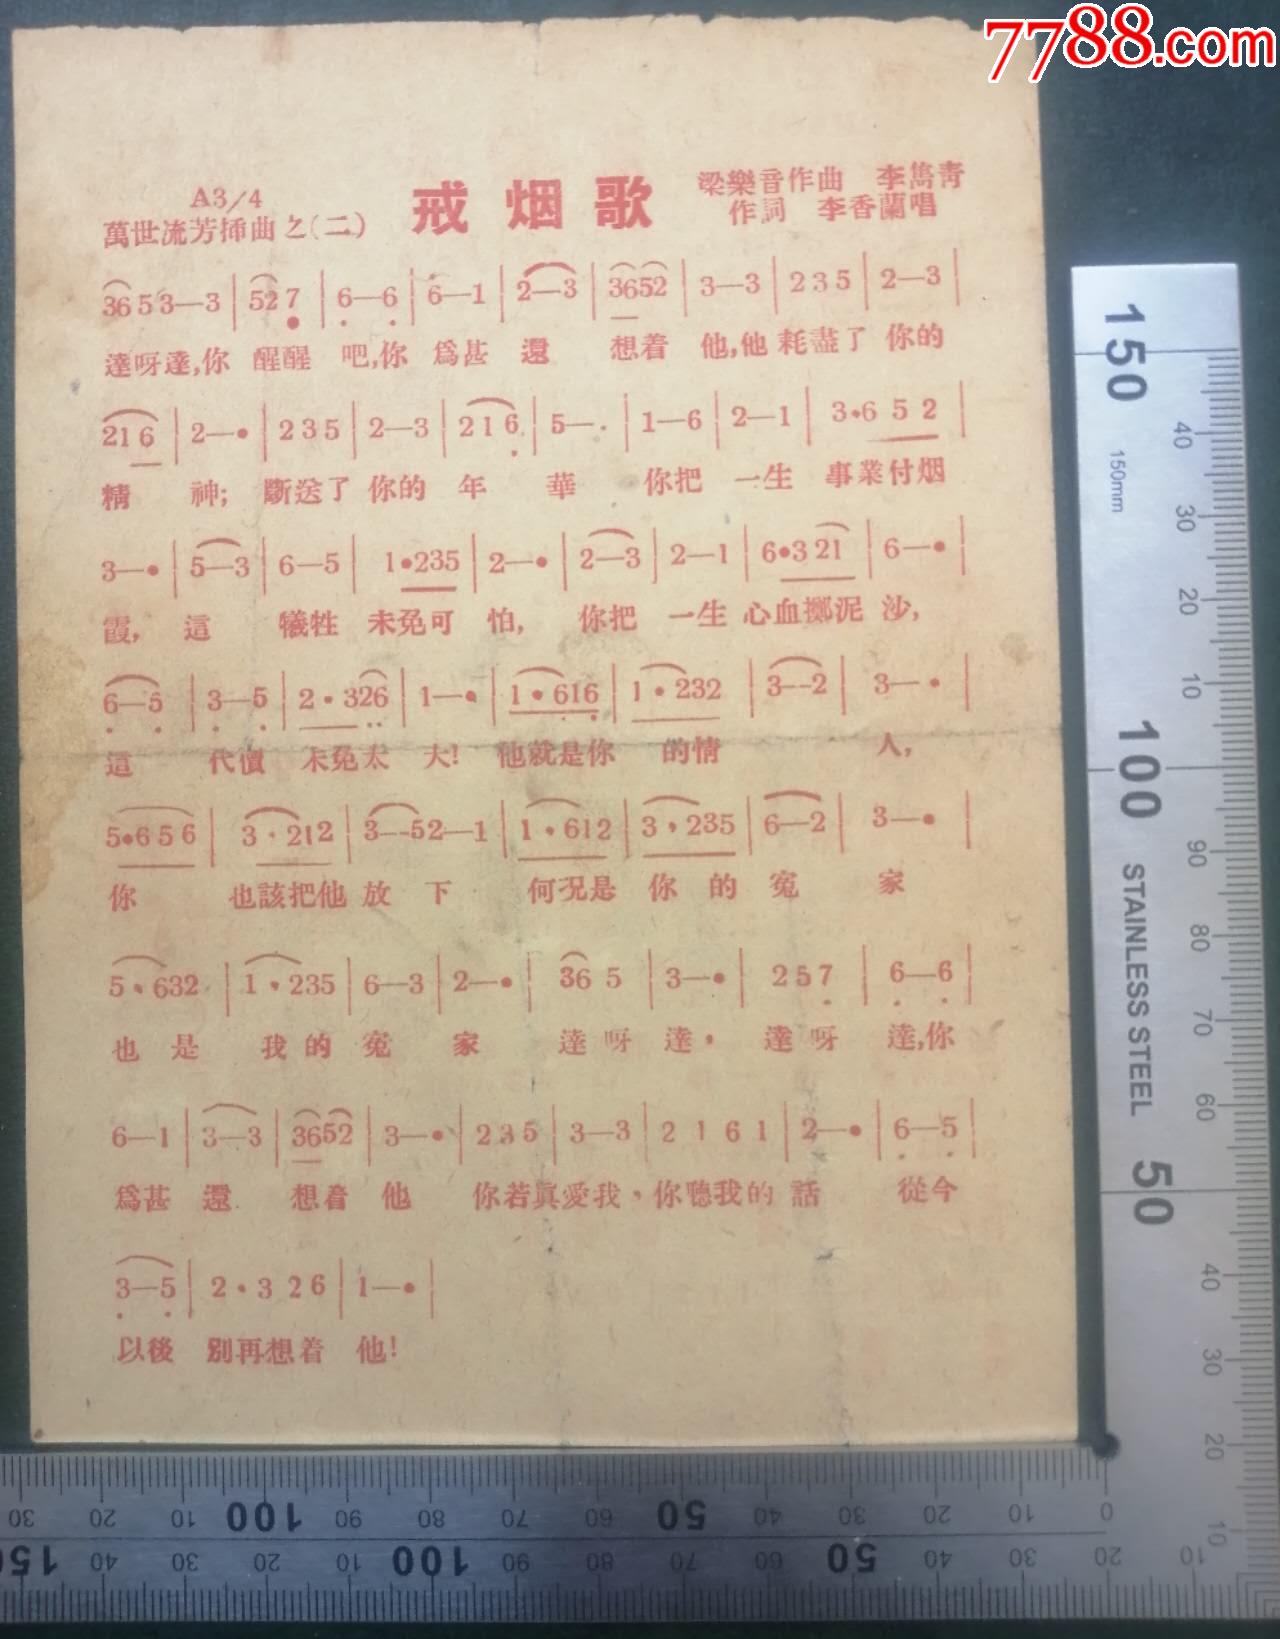 7788.com
A3/4
萬世流芳揷曲之(二)
戒烟歌
梁樂音作曲 李雋靑
作詞 李香蘭唱
36 5 3—3 | 52 7 | 6—6 | 6—1 | 2—3 | 3652 | 3—3 | 2 3 5 | 2—3 |
達呀達,你 醒醒 吧,你 爲甚 還 想着 他,他 耗盡了 你的
21 6 | 2—• | 2 3 5 | 2—3 | 2 1 6 | 5—. | 1—6 | 2—1 | 3•6 5 2 |
精 神; 斷送了 你的 年 華 你把 一生 事業付烟
3—• | 5—3 | 6—5 | 1•235 | 2—• | 2—3 | 2—1 | 6•3 21 | 6—• |
霞, 這 犧牲 未免可 怕, 你把 一生 心血擲泥 沙,
6—5 | 3—5 | 2•326 | 1—• | 1•616 | 1•232 | 3—2 | 3—• |
這 代價 未免太 大! 他就是你 的情 人,
5•6 5 6 | 3•212 | 3—52—1 | 1•612 | 3•235 | 6—2 | 3—• |
你 也該把他 放 下 何况是 你 的 寃 家
5•632 | 1•235 | 6—3 | 2—• | 36 5 | 3—• | 2 5 7 | 6—6 |
也 是 我 的 寃 家 達 呀 達, 達 呀 達,你
6—1 | 3—3 | 3652 | 3—• | 2 3 5 | 3—3 | 2 1 6 1 | 2—• | 6—5 |
爲甚 還 想着 他 你若眞愛我,你聽我的 話 從今
3—5 | 2•3 2 6 | 1—• |
以後 別再想着 他!
150
150mm
40
30
20
10
100
90
80
70
60
50
40
30
20
10
STAINLESS STEEL
30 20 10 100 90 80 70 60 50 40 30 20 10 0
150 40 30 20 10 100 90 80 70 60 50 40 30 20 10